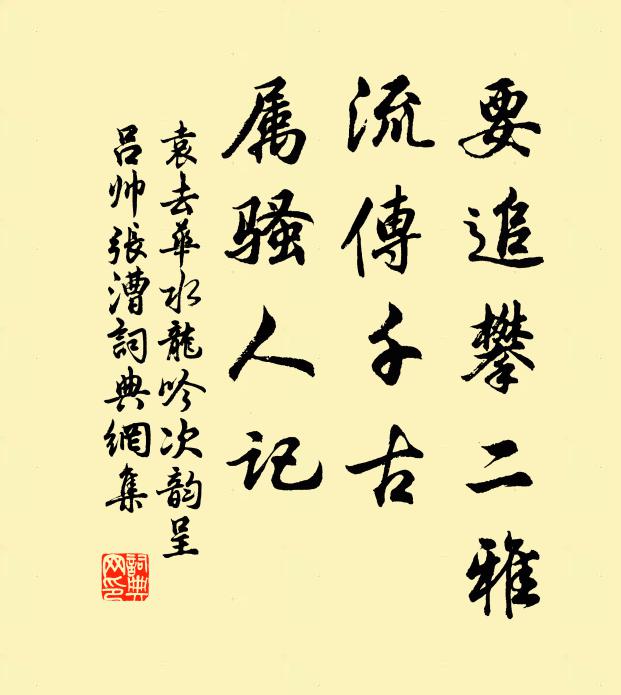 要追攀二雅
流傳千古
属骚人记
袁去華水龍吟次韵呈
吕帅張漕詞典網集
詞典
网印